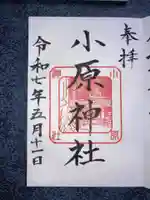 奉拝
小原神社
令和七年五月十一日